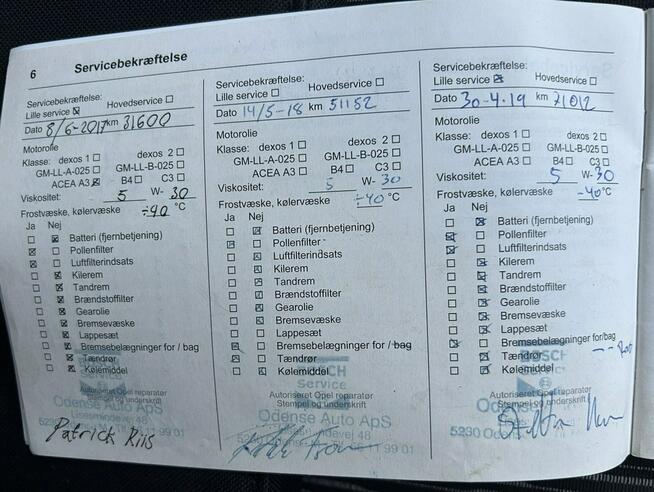 6 Servicebekræftelse
Servicebekræftelse:
Lille service ☒ Hovedservice ☐
Dato 8/6-2017 km 31600
Motorolie
Klasse: dexos 1 ☐ dexos 2 ☐
GM-LL-A-025 ☐ GM-LL-B-025 ☐
ACEA A3 ☒ B4 ☐ C3 ☐
Viskositet: 5 W- 30
Frostvæske, kølervæske ÷40 °C
Ja Nej
☐ ☒ Batteri (fjernbetjening)
☒ ☐ Pollenfilter
☒ ☐ Luftfilterindsats
☐ ☒ Kilerem
☐ ☒ Tandrem
☐ ☒ Brændstoffilter
☐ ☒ Gearolie
☐ ☒ Bremsevæske
☐ ☒ Lappesæt
☐ ☒ Bremsebelægninger for / bag
☐ ☒ Tændrør
☐ ☒ Kølemiddel
Autoriseret Opel reparatør
Stempel og underskrift
Odense Auto ApS
Patrick Riis
Servicebekræftelse:
Lille service ☐ Hovedservice ☐
Dato 14/5-18 km 51152
Motorolie
Klasse: dexos 1 ☐ dexos 2 ☐
GM-LL-A-025 ☐ GM-LL-B-025 ☐
ACEA A3 ☐ B4 ☐ C3 ☐
Viskositet: 5 W- 30
Frostvæske, kølervæske ÷40 °C
Ja Nej
☐ ☒ Batteri (fjernbetjening)
☒ ☐ Pollenfilter
☐ ☒ Luftfilterindsats
☐ ☒ Kilerem
☐ ☒ Tandrem
☐ ☒ Brændstoffilter
☐ ☒ Gearolie
☐ ☒ Bremsevæske
☐ ☐ Lappesæt
☒ ☐ Bremsebelægninger for / bag
☒ ☐ Tændrør
☐ ☒ Kølemiddel
BOSCH
Service
Autoriseret Opel reparatør
Stempel og underskrift
Odense Auto ApS
Servicebekræftelse:
Lille service ☒ Hovedservice ☐
Dato 30-4-19 km 71012
Motorolie
Klasse: dexos 1 ☐ dexos 2 ☐
GM-LL-A-025 ☐ GM-LL-B-025 ☐
ACEA A3 ☐ B4 ☐ C3 ☐
Viskositet: 5 W- 30
Frostvæske, kølervæske -40 °C
Ja Nej
☐ ☒ Batteri (fjernbetjening)
☒ ☐ Pollenfilter
☒ ☐ Luftfilterindsats
☐ ☒ Kilerem
☐ ☒ Tandrem
☐ ☒ Brændstoffilter
☐ ☒ Gearolie
☐ ☒ Bremsevæske
☐ ☒ Lappesæt
☒ ☐ Bremsebelægninger for/bag
☐ ☒ Tændrør
☐ ☒ Kølemiddel
BOSCH
Autoriseret Opel reparatør
Stempel og underskrift
5230 Odens